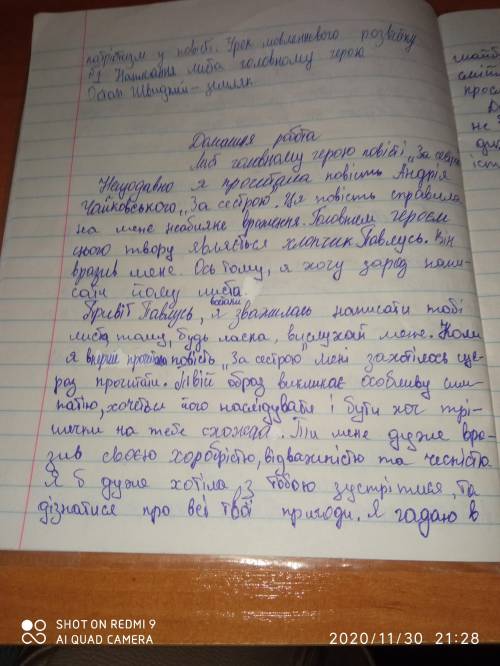 патріотизм у повісті. Урок мовленнєвого розвитку
№1 Написання листа головному герою
Остап Швидкий - земляк
Домашня робота
Лист головному герою повісті „За сестрою
Нещодавно я прочитала повість Андрія
Чайковського „За сестрою. Ця повість справила
на мене неабияке враження. Головним героєм
цього твору являється хлопчик Павлусь. Він
вразив мене. Ось тому, я хочу зараз напи-
сати йому листа.
Привіт Павлусь, я зважилась написати тобі
листа, тому, будь ласка, вислухай мене. Коли
я вперше прочитала повість „За сестрою мені захотілось ще
раз прочитати. Твій образ викликає особливу сим-
патію, хочеться його наслідувати і бути хоч трі-
шечки на тебе схожою. Ти мене дуже вра-
зив своєю хоробрістю, відважністю та чесністю
Я б дуже хотіла з тобою зустрітися, та
дізнатися про всі твої пригоди. Я гадаю в
майб
сміт
прос
не
дит
іст
SHOT ON REDMI 9
AI QUAD CAMERA
2020/11/30 21:28